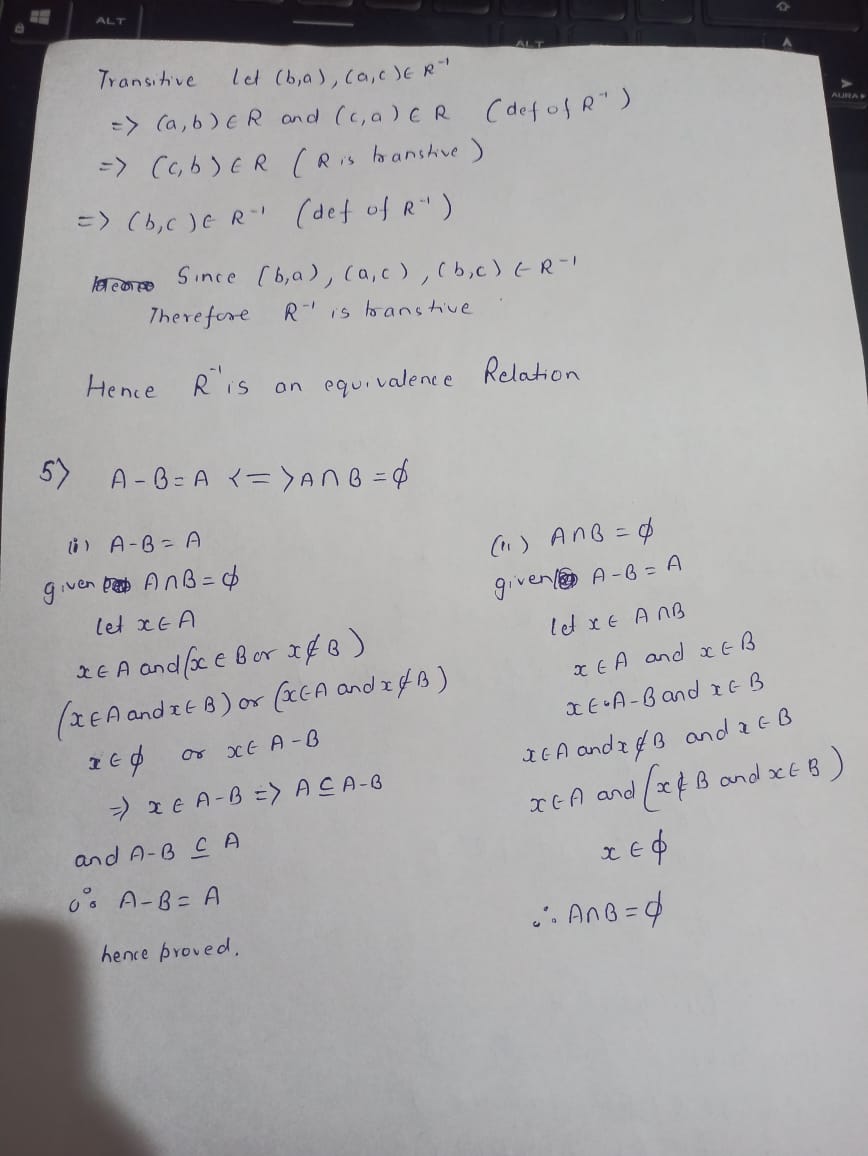 ALT
ALT
AURA
Transitive Let (b,a), (a,c) ∈ R⁻¹
=> (a,b) ∈ R and (c,a) ∈ R (def of R⁻¹)
=> (c,b) ∈ R ( R is transtive )
=> (b,c) ∈ R⁻¹ (def of R⁻¹)
Since (b,a), (a,c), (b,c) ∈ R⁻¹
Therefore R⁻¹ is transtive
Hence R⁻¹ is an equivalence Relation
5) A-B=A <=> A∩B=ϕ
(i) A-B=A
given A∩B=ϕ
let x∈A
x∈A and (x∈B or x∉B)
(x∈A and x∈B) or (x∈A and x∉B)
x∈ϕ or x∈A-B
=> x∈A-B => A⊆A-B
and A-B ⊆ A
∴ A-B=A
hence proved.
(ii) A∩B=ϕ
given A-B=A
let x∈ A∩B
x∈A and x∈B
x∈A-B and x∈B
x∈A and x∉B and x∈B
x∈A and (x∉B and x∈B)
x∈ϕ
∴ A∩B=ϕ